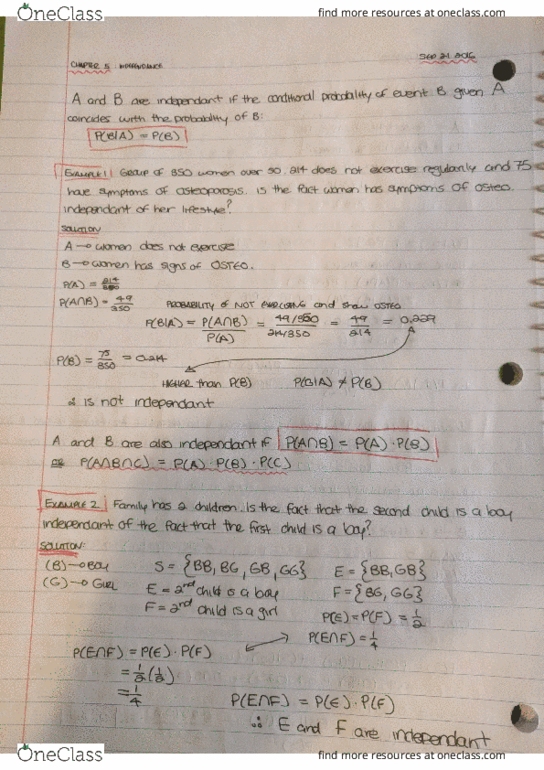 OneClass
find more resources at oneclass.com
CHAPTER 5 INDEPENDANCE
SEP 21 2016
A and B are independant if the conditional probability of event B given A
coincides with the probability of B:
P(B|A) = P(B)
EXAMPLE 1 | Group of 350 women over 50. 214 does not exercise regularly and 75
have symptoms of osteoporosis. Is the fact women has symptoms of osteo.
independant of her lifestyle?
SOLUTION
A → women does not exercise
B → women has signs of OSTEO.
P(A) = 214/350
P(A∩B) = 49/350 PROBABILITY OF NOT and show OSTEO
P(B|A) = P(A∩B)/P(A) = 49/350 / 214/350 = 49/214 = 0.229
P(B) = 75/350 = 0.214
HIGHER than P(B) P(B|A) ≠ P(B)
∴ is not independant
A and B are also independant if P(A∩B) = P(A)·P(B)
P(A∩B∩C) = P(A)·P(B)·P(C)
EXAMPLE 2 | Family has 2 children. Is the fact that the second child is a boy
independant of the fact that the first child is a boy?
SOLUTION:
(B) → Boy S = {BB, BG, GB, GG} E = {BB, GB}
(G) → Girl E = 2nd child is a boy F = {BG, GG}
F = 2nd child is a girl P(E) = P(F) = 1/2
P(E∩F) = 1/4
P(E∩F) = P(E)·P(F)
= 1/2 (1/2)
= 1/4
P(E∩F) = P(E)·P(F)
∴ E and F are independant
OneClass
find more resources at oneclass.com